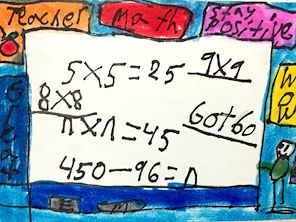 Teacher
Math
Stay
Positive
5×5=25
9×9
8×8
n×n=45
60+60
450-96=n
Great
WOW